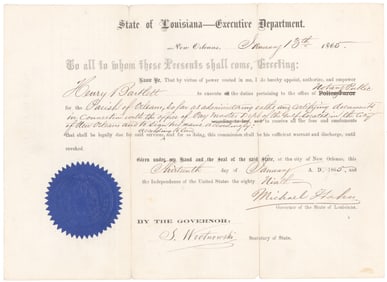 State of Louisiana—Executive Department.
New Orleans, January 13th 1865.
To all to whom these Presents shall come, Greeting:
Know Ye, That by virtue of power vested in me, I do hereby appoint, authorize, and empower
Henry Bartlett Notary Public
to execute all the duties pertaining to the office of
for the Parish of Orleans, so far as administering oaths and certifying documents
in connection with the office of Pay Master Dept of the Gulf located in the City
of New Orleans and to receive all the fees and emoluments
that shall be legally due for said services, and for so doing, this commission shall be his sufficient warrant and discharge, until
revoked.
Given under my Hand and the Seal of the said State, at the city of New Orleans, this
Thirteenth day of January A. D. 1865, and
the Independence of the United States the eighty Ninth
Michael Hahn
Governor of the State of Louisiana.
BY THE GOVERNOR:
S. Wrotnowski
Secretary of State.